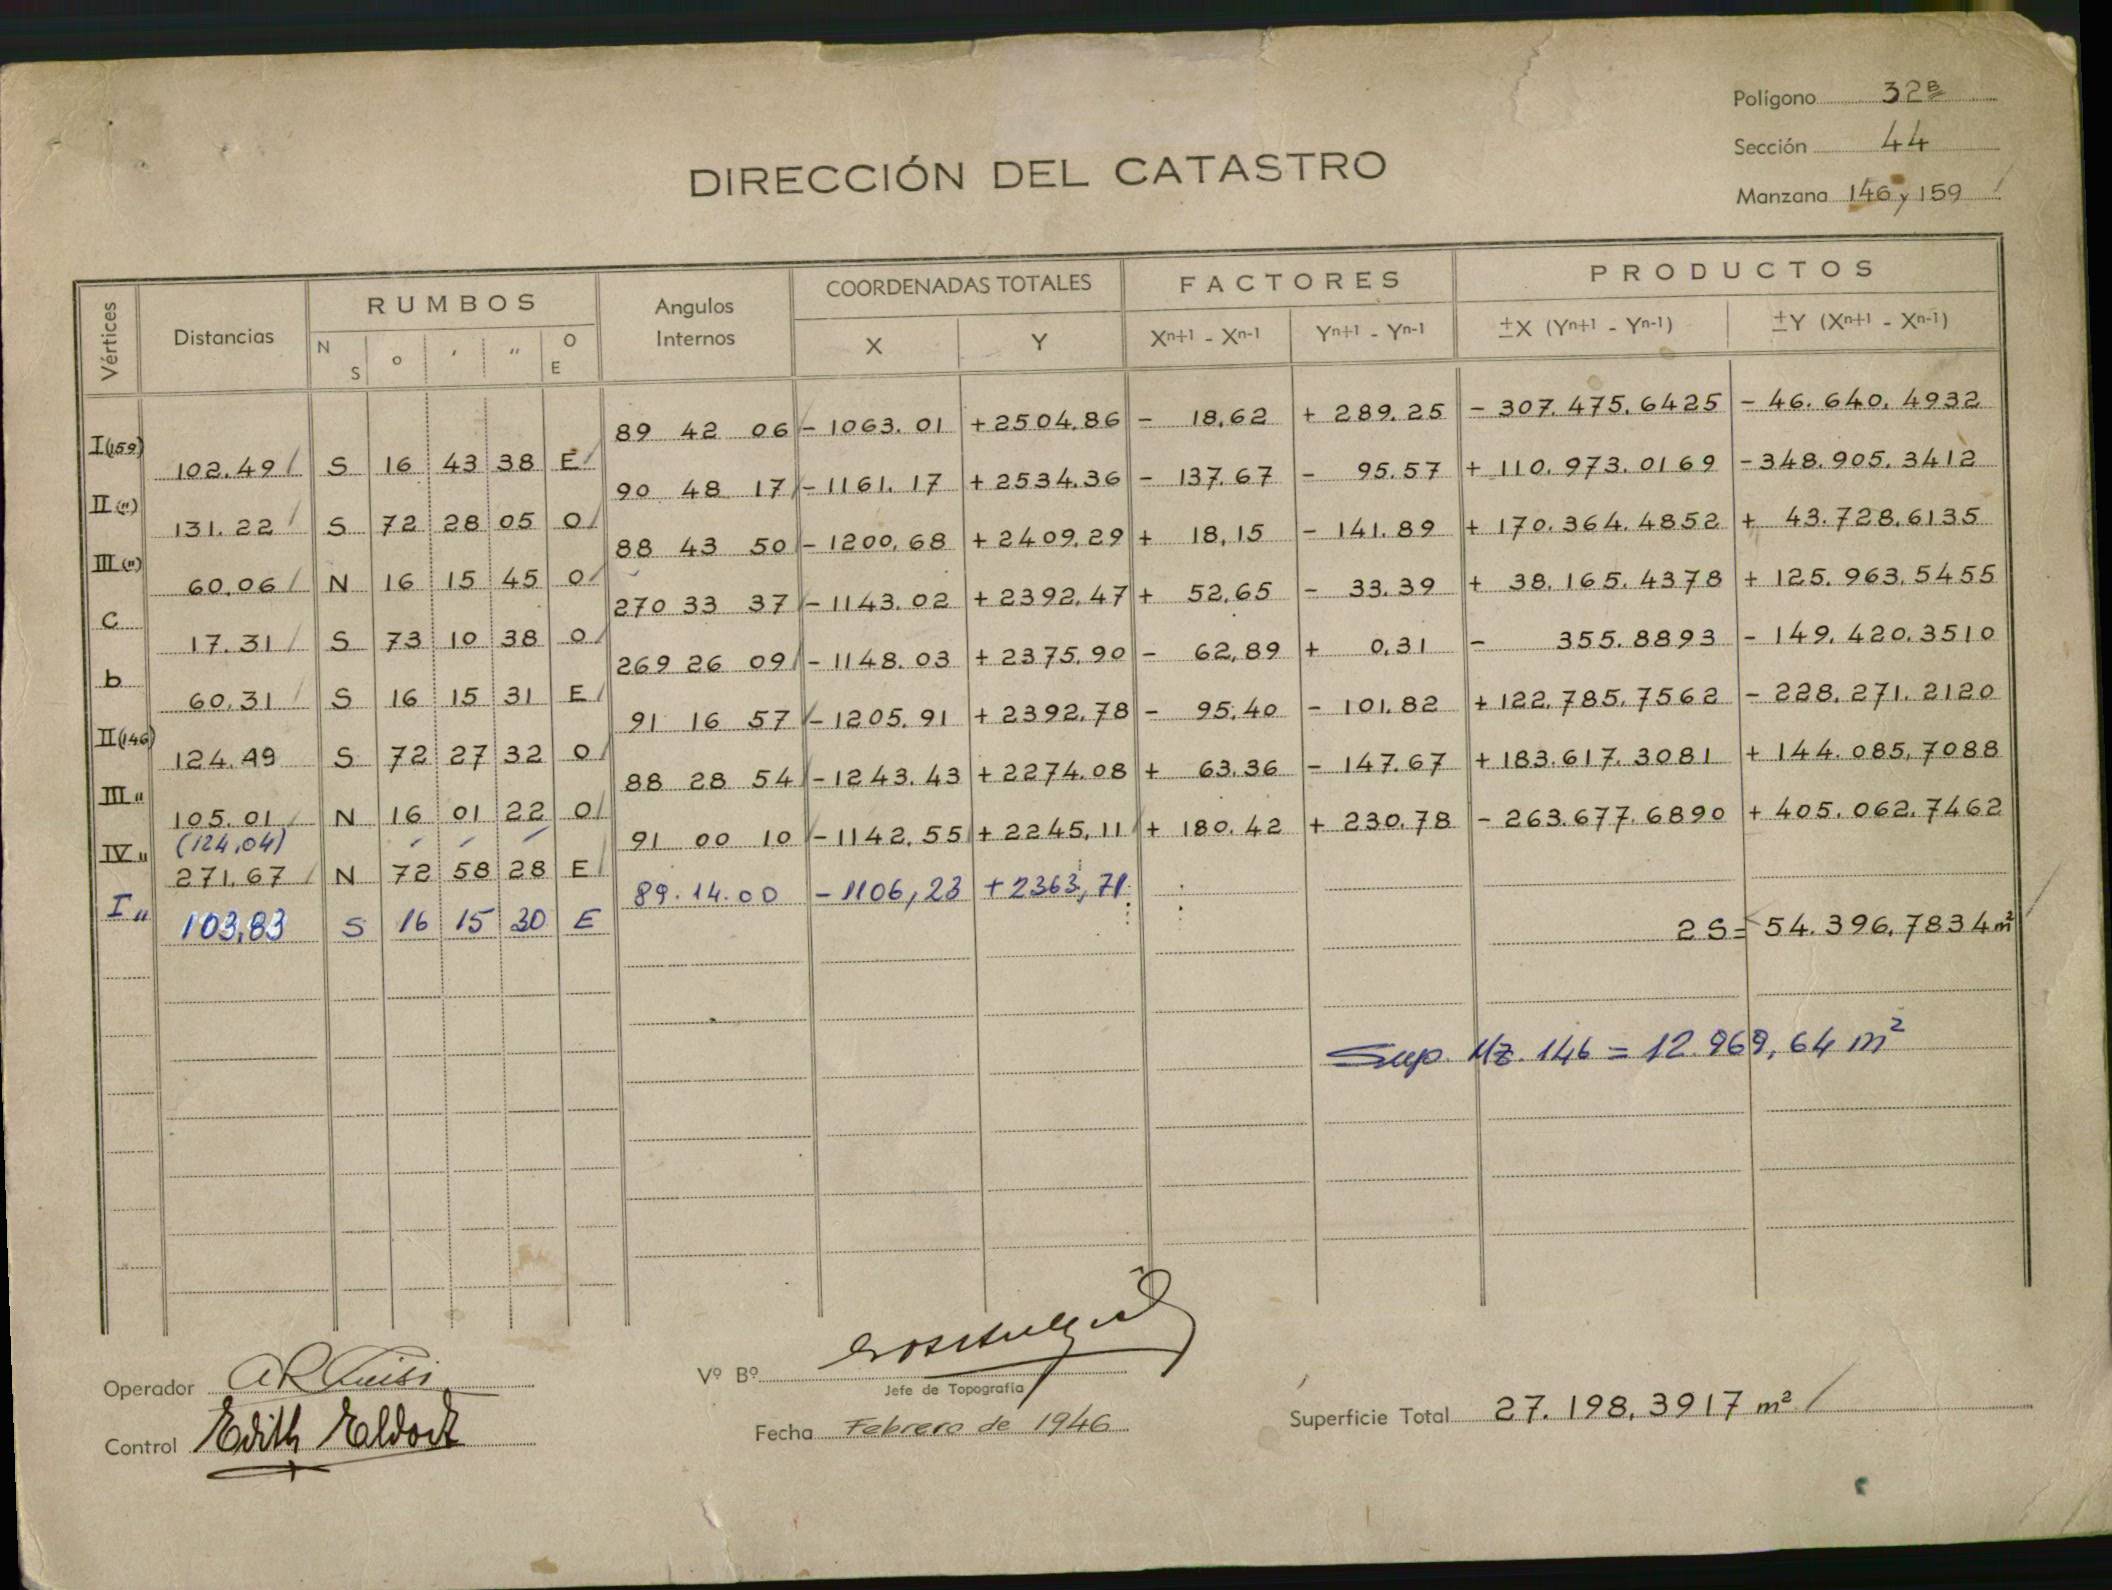 Polígono 32B
Sección 44
Manzana 146 y 159
DIRECCIÓN DEL CATASTRO
Vértices Distancias RUMBOS Angulos Internos COORDENADAS TOTALES FACTORES PRODUCTOS
N S o ′ ″ O E X Y Xn+1 - Xn-1 Yn+1 - Yn-1 ±X (Yn+1 - Yn-1) ±Y (Xn+1 - Xn-1)
89 42 06 - 1063.01 + 2504.86 - 18,62 + 289.25 - 307.475,6425 - 46.640,4932
I (159) 102.49 S 16 43 38 E
90 48 17 - 1161.17 + 2534.36 - 137.67 - 95.57 + 110.973.0169 - 348.905.3412
II (") 131.22 S 72 28 05 O
88 43 50 - 1200,68 + 2409.29 + 18,15 - 141.89 + 170.364.4852 + 43.728,6135
III (") 60,06 N 16 15 45 O
270 33 37 - 1143.02 + 2392.47 + 52,65 - 33.39 + 38.165.4378 + 125.963,5455
c 17.31 S 73 10 38 O
269 26 09 - 1148.03 + 2375.90 - 62,89 + 0,31 - 355.8893 - 149.420.3510
b 60,31 S 16 15 31 E
91 16 57 - 1205.91 + 2392,78 - 95,40 - 101.82 + 122.785,7562 - 228.271.2120
II (146) 124.49 S 72 27 32 O
88 28 54 - 1243.43 + 2274.08 + 63.36 - 147.67 + 183.617.3081 + 144.085,7088
III " 105.01 N 16 01 22 O
91 00 10 - 1142,55 + 2245,11 + 180.42 + 230,78 - 263.677.6890 + 405.062.7462
(124,04)
IV " 271,67 N 72 58 28 E
89.14.00 - 1106,23 + 2363,71
I " 103,83 S 16 15 30 E
2 S = 54.396,7834 m²
Sup. Mz. 146 = 12.969,64 m²
Operador
Control Edith
Vº Bº
Jefe de Topografía
Fecha Febrero de 1946
Superficie Total 27.198,3917 m²